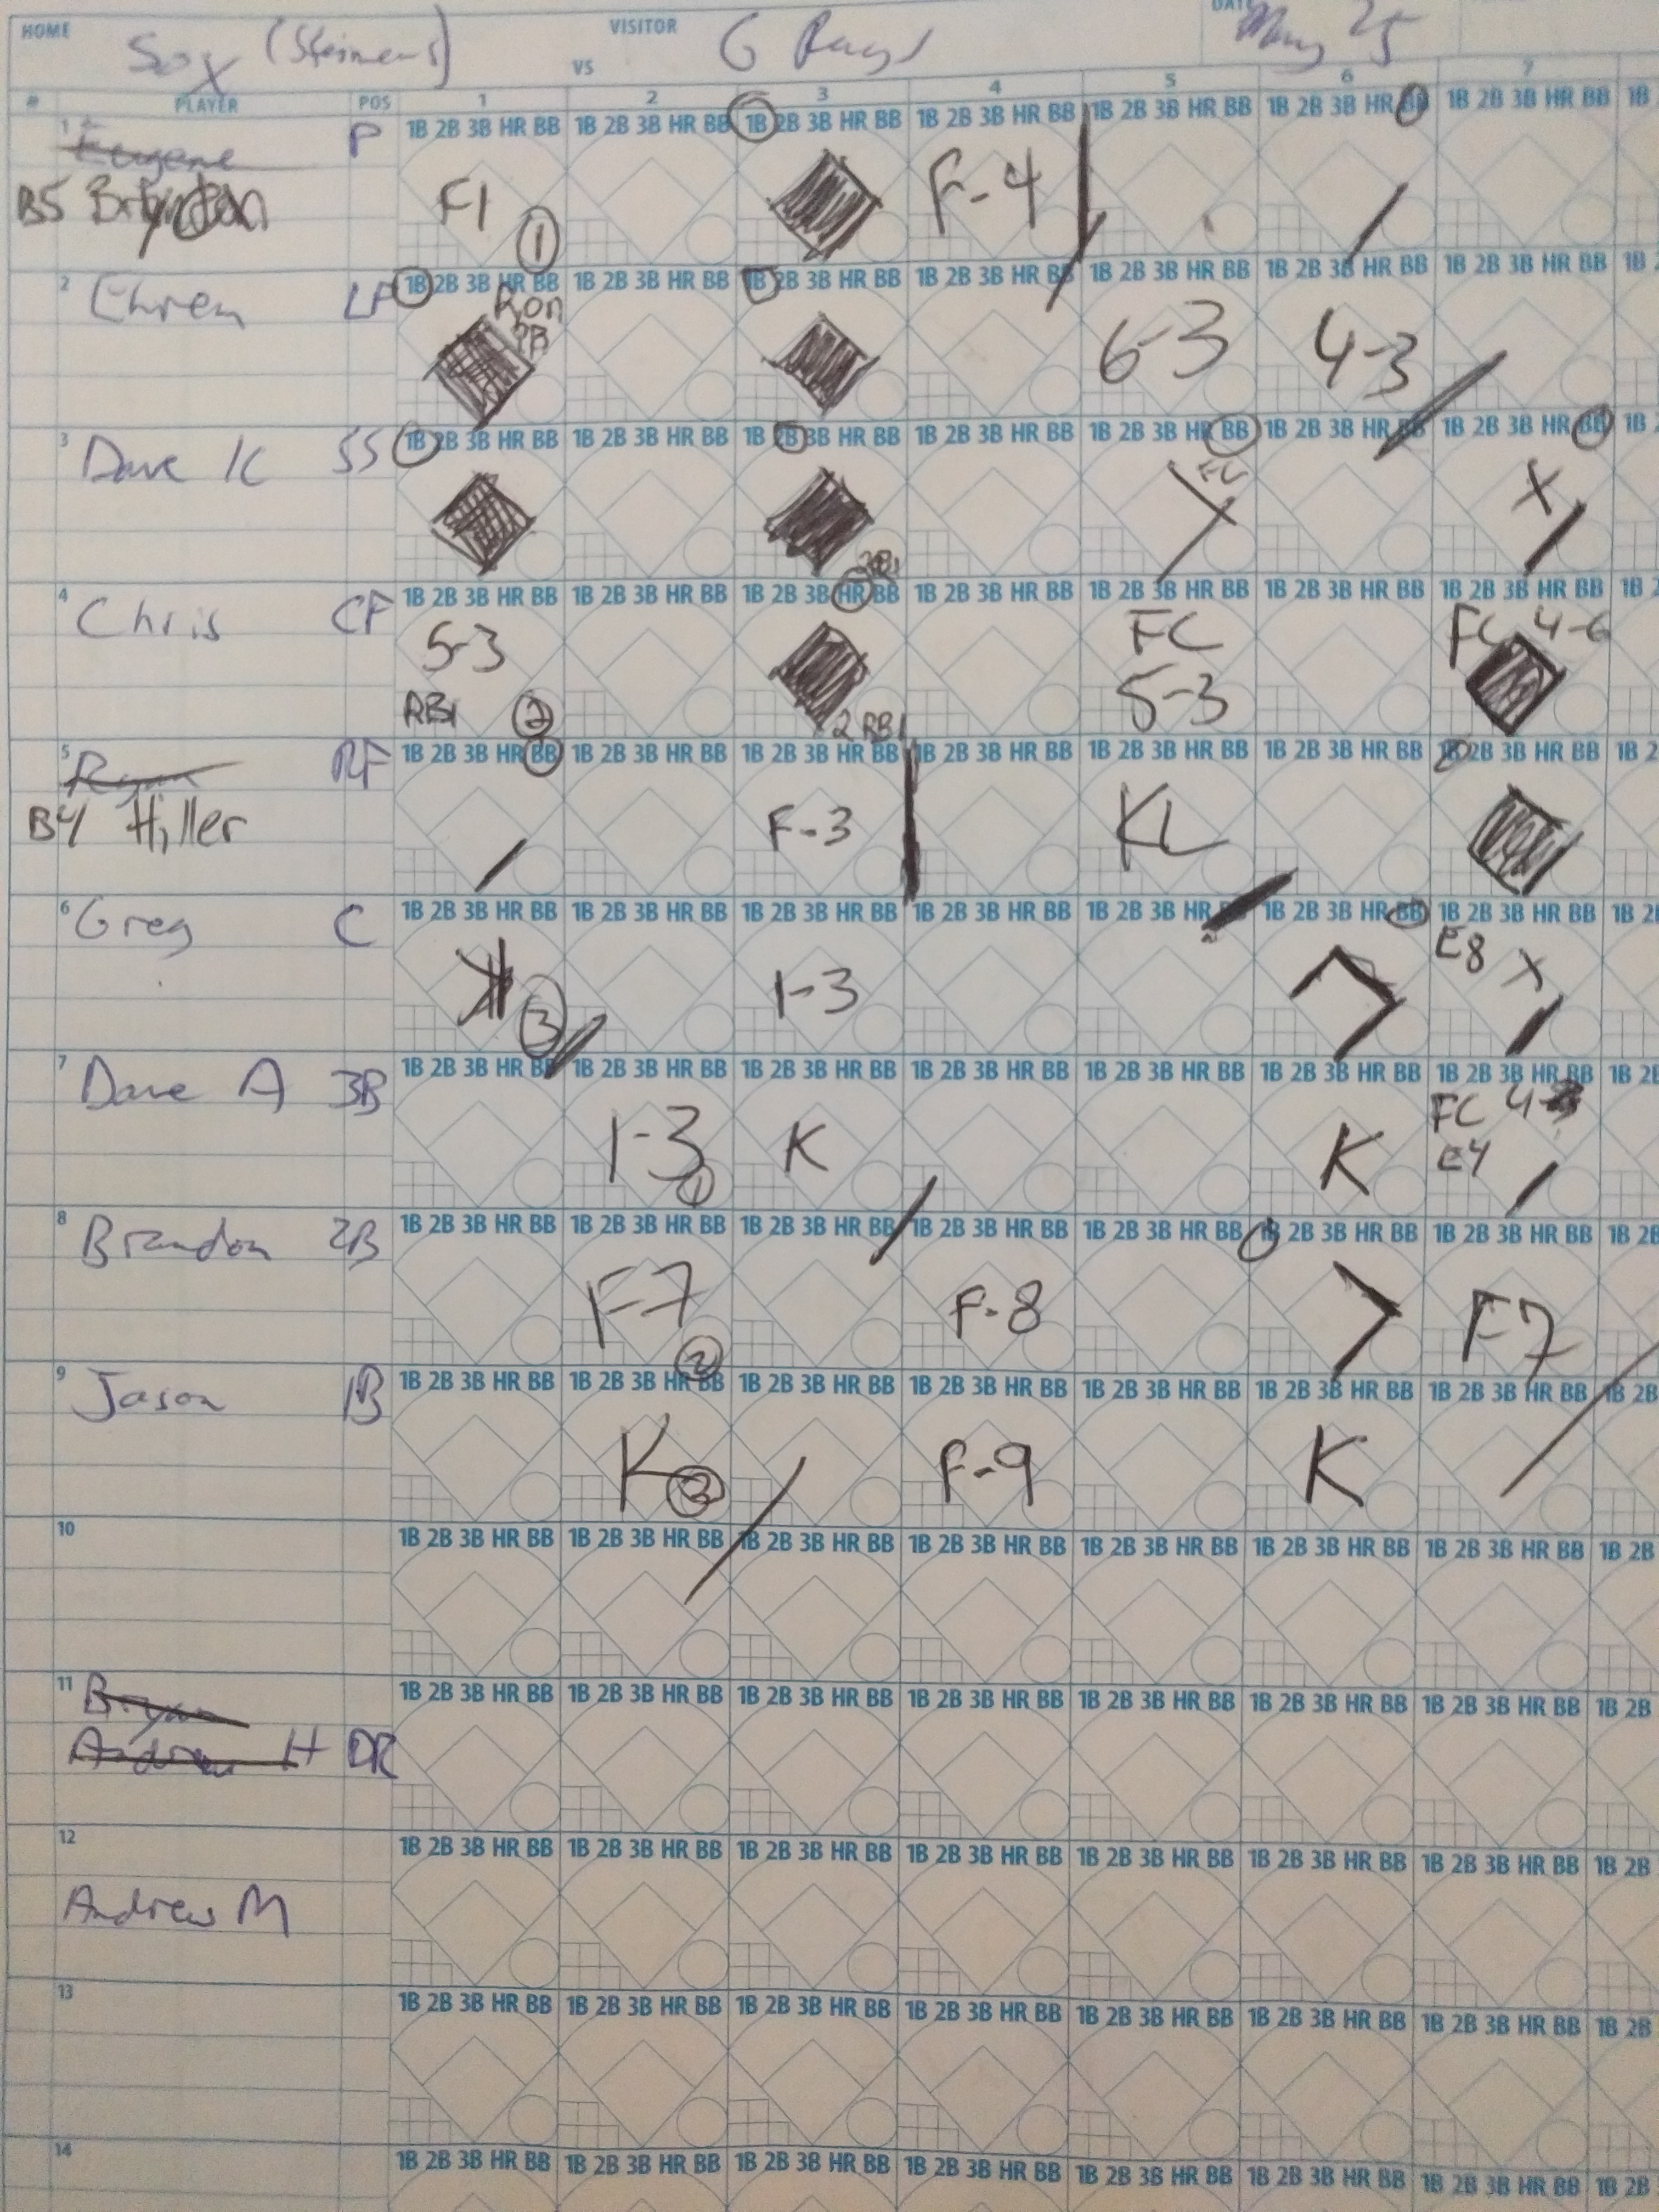 HOME Sox (Steiners) VISITOR G Rays DATE May 25
VS
# PLAYER POS 1 2 3 4 5 6 7
1 Eugene P 1B 2B 3B HR BB 1B 2B 3B HR BB 1B 2B 3B HR BB 1B 2B 3B HR BB 1B 2B 3B HR BB 1B 2B 3B HR BB 1B 2B 3B HR BB 1B
B5 F1 1 F-4
2 Ehren LF 1B 2B 3B HR BB 1B 2B 3B HR BB 1B 2B 3B HR BB 1B 2B 3B HR BB 1B 2B 3B HR BB 1B 2B 3B HR BB 1B 2B 3B HR BB 1B
6-3 4-3
3 Dave K SS 1B 2B 3B HR BB 1B 2B 3B HR BB 1B 2B 3B HR BB 1B 2B 3B HR BB 1B 2B 3B HR BB 1B 2B 3B HR BB 1B 2B 3B HR BB 1B
FC X
4 Chris CF 1B 2B 3B HR BB 1B 2B 3B HR BB 1B 2B 3B HR BB 1B 2B 3B HR BB 1B 2B 3B HR BB 1B 2B 3B HR BB 1B 2B 3B HR BB 1B 2
5-3 FC FC 4-6
RBI 2 2 RBI 5-3
5 Ryan RF 1B 2B 3B HR BB 1B 2B 3B HR BB 1B 2B 3B HR BB 1B 2B 3B HR BB 1B 2B 3B HR BB 1B 2B 3B HR BB 1B 2B 3B HR BB 1B 2
B4 Hiller F-3 KL
6 Greg C 1B 2B 3B HR BB 1B 2B 3B HR BB 1B 2B 3B HR BB 1B 2B 3B HR BB 1B 2B 3B HR BB 1B 2B 3B HR BB 1B 2B 3B HR BB 1B 2
3 1-3 E8 X
7 Dave A 3B 1B 2B 3B HR BB 1B 2B 3B HR BB 1B 2B 3B HR BB 1B 2B 3B HR BB 1B 2B 3B HR BB 1B 2B 3B HR BB 1B 2B 3B HR BB 1B 2B
1-3 1 K K FC 4-
E4
8 Brandon 2B 1B 2B 3B HR BB 1B 2B 3B HR BB 1B 2B 3B HR BB 1B 2B 3B HR BB 1B 2B 3B HR BB 1B 2B 3B HR BB 1B 2B 3B HR BB 1B 2B
F-7 2 F-8 F7
9 Jason 1B 1B 2B 3B HR BB 1B 2B 3B HR BB 1B 2B 3B HR BB 1B 2B 3B HR BB 1B 2B 3B HR BB 1B 2B 3B HR BB 1B 2B 3B HR BB 1B 2B
K 3 F-9 K
10 1B 2B 3B HR BB 1B 2B 3B HR BB 1B 2B 3B HR BB 1B 2B 3B HR BB 1B 2B 3B HR BB 1B 2B 3B HR BB 1B 2B 3B HR BB 1B 2B
11 Bryan 1B 2B 3B HR BB 1B 2B 3B HR BB 1B 2B 3B HR BB 1B 2B 3B HR BB 1B 2B 3B HR BB 1B 2B 3B HR BB 1B 2B 3B HR BB 1B 2B
Andrew H DR
12 1B 2B 3B HR BB 1B 2B 3B HR BB 1B 2B 3B HR BB 1B 2B 3B HR BB 1B 2B 3B HR BB 1B 2B 3B HR BB 1B 2B 3B HR BB 1B 2B
Andrew M
13 1B 2B 3B HR BB 1B 2B 3B HR BB 1B 2B 3B HR BB 1B 2B 3B HR BB 1B 2B 3B HR BB 1B 2B 3B HR BB 1B 2B 3B HR BB 1B 2B
14 1B 2B 3B HR BB 1B 2B 3B HR BB 1B 2B 3B HR BB 1B 2B 3B HR BB 1B 2B 3B HR BB 1B 2B 3B HR BB 1B 2B 3B HR BB 1B 2B